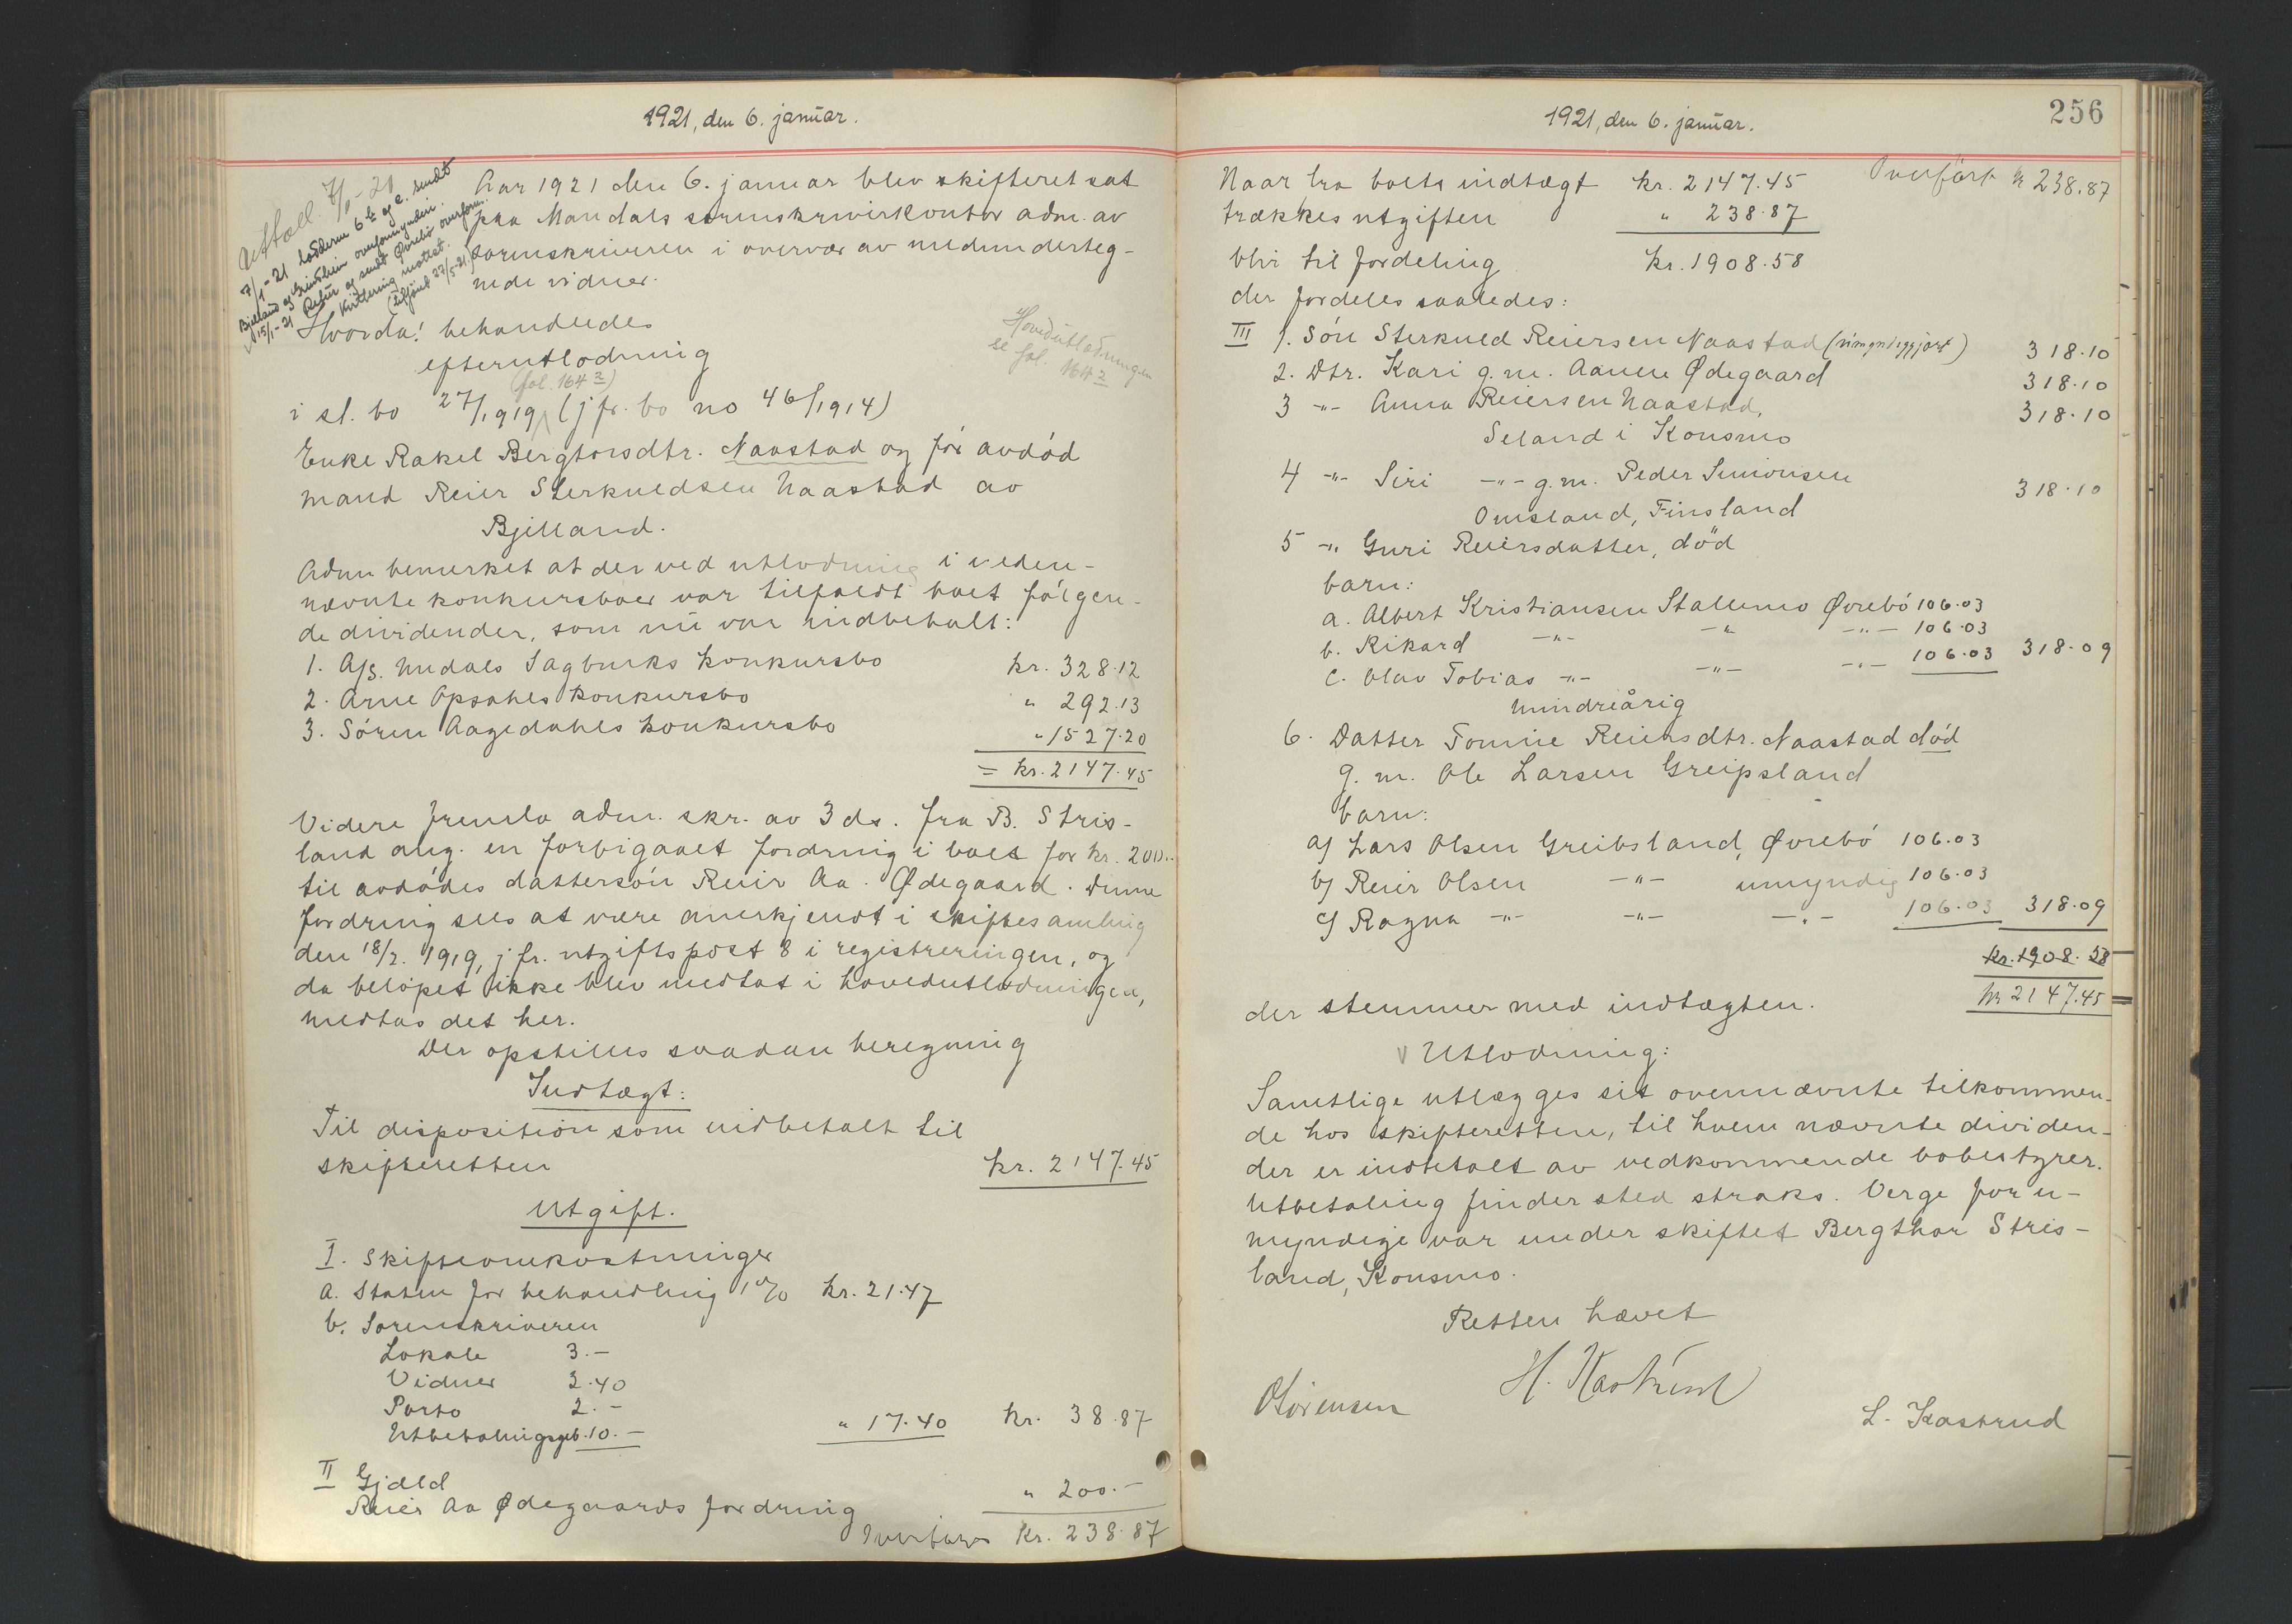 1921, den 6. januar.
Utskll. 7/1-21
7/1-21 lodderne 6 b og c. sendt
Bjelland og Grindheim overformynderi.
15/1-21 Retur og sendt Øvrebø overform.
Kvittering mottat.
Aar 1921 den 6. januar blev skifteret sat
paa Mandals sorenskriverkontor adm. av
sorenskriveren i overvær av medunderteg-
nede vidner.
Hvorda! behandledes
efterutlodning
Hovedutlodningen
se fol. 164 2
(fol. 164 2)
i sl. bo 27/1919 (jfr. bo no 46/1914)
Enke Rakel Bergtorsdtr. Naastad og før avdød
mand Reier Sterkuedsen Naastad av
Bjelland.
Adm bemerket at der ved utlodning i neden-
nævnte konkursboer var tilfaldt boet følgen-
de dividender, som nu var indbetalt:
1. A/S. Undals Sagbruks konkursbo kr. 328.12
2. Arne Opsahls konkursbo " 292.13
3. Søren Aagedahls konkursbo " 1527.20
= kr. 2147.45
Videre fremla adm. skr. av 3 ds. fra B. Stris-
land ang. en forbigaaet fordring i boet for kr. 200..
til avdødes dattersøn Reier Aa. Ødegaard. Denne
fordring sees at være anerkjendt i skiftesamling
den 18/2. 1919, jfr. utgiftspost 8 i registreringen, og
da beløpet ikke blev medtat i hovedutlodningen,
medtas det her.
Der opstilles saadan beregning
Indtægt:
Til disposition som indbetalt til
skifteretten kr. 2147.45
Utgift.
I. Skifteomkostninger
a. Staten for behandling 1% kr. 21.47
b. Sorenskriveren
Lokale 3.-
Vidner 2.40
Porto 2.-
Utbetalingsgeb. 10.- " 17.40 kr. 38.87
II Gjæld
Reier Aa Ødegaards fordring " 200.-
Overføres Kr. 238.87
1921, den 6. januar.
256
Overført kr 238.87
Naar fra boets indtægt kr. 2147.45
trækkes utgiften " 238.87
blir til fordeling kr. 1908.58
der fordeles saaledes:
III 1. Søn Sterkued Reiersen Naastad (umyndiggjort) 318.10
2. Dtr. Kari g.m. Aanen Ødegaard 318.10
3 -"- Anna Reiersen Naastad, 318.10
Seland i Konsmo
4 -"- Siri -"- g.m. Peder Simonsen 318.10
Omsland, Finsland
5 -"- Guri Reiersdatter, död
barn:
a. Albert Kristiansen Stallemo Øvrebø 106.03
b. Rikard -"- -"- -"- 106.03
c. Olav Tobias -"- -"- -"- 106.03 318.09
mindreårig
6. Datter Tomine Reiersdtr. Naastad död
g. m. Ole Larsen Greipsland
barn:
a) Lars Olsen Greibsland, Øvrebø 106.03
b) Reier Olsen -"- umyndig 106.03
c) Ragna -"- -"- -"- 106.03 318.09
kr. 1908.58
der stemmer med indtægten. kr 2147.45
V Utlodning:
Samtlige utlægges sit ovennævnte tilkommen-
de hos skifteretten, til hvem nævnte dividen-
der er indbetalt av vedkommende bobestyrer.
Utbetaling finder sted straks. Verge for u-
myndige var under skiftet Bergthor Stris-
land, Konsmo.
Retten hævet
OSörensen
L. Kastrud